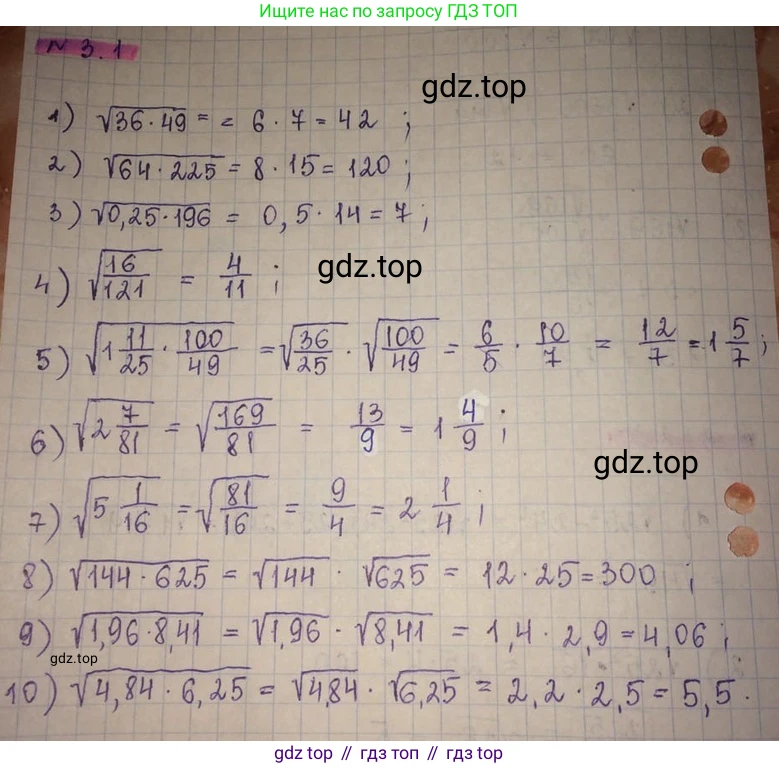 Ищите нас по запросу ГДЗ ТОП
N 3.1
gdz.top
1) √36·49 = = 6·7 = 42 ;
2) √64·225 = 8·15 = 120 ;
3) √0,25·196 = 0,5·14 = 7 ;
4) √16/121 = 4/11 ;
gdz.top
5) √1 11/25 · 100/49 = √36/25 · √100/49 = 6/5 · 10/7 = 12/7 = 1 5/7 ;
6) √2 7/81 = √169/81 = 13/9 = 1 4/9 ;
gdz.top
7) √5 1/16 = √81/16 = 9/4 = 2 1/4 ;
8) √144·625 = √144 · √625 = 12·25 = 300 ;
9) √1,96·8,41 = √1,96 · √8,41 = 1,4·2,9 = 4,06 ;
gdz.top
10) √4,84·6,25 = √4,84 · √6,25 = 2,2·2,5 = 5,5.
gdz top // гдз топ // gdz.top